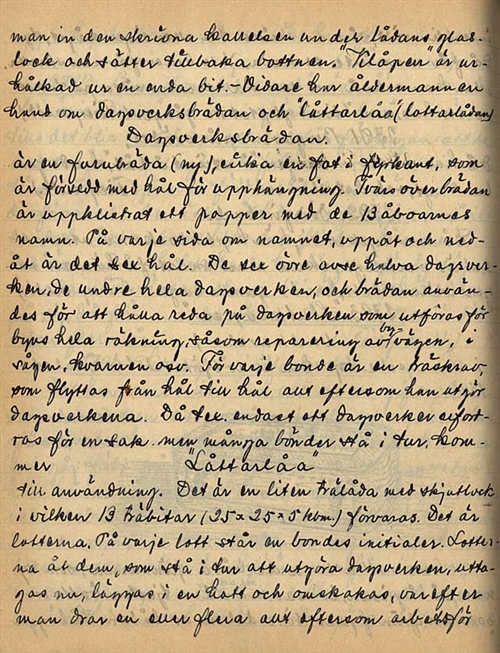 man in den skrivna kallelsen under lådans glas-
lock och sätter tillbaka bottnen. "Tilåpen" är ur-
hålkad ur en enda bit. - Vidare har åldermannen
hand om dagsverksbrädan och "låttarlåa" (lottarlådan)
Dagsverksbrädan.
är en furubräda (ny), cirka en fot i fyrkant, som
är försedd med hål för upphängning. Tvärs över brädan
är uppklistrat ett papper med de 13 åboarnes
namn. På varje sida om namnet, uppåt och ned-
åt är det sex hål. De sex övre avse halva dagsver-
ken, de undre hela dagsverken, och brädan använ-
des för att hålla reda på dagsverken som utföras för
byns hela räkning, såsom reparering av byvägen, i
sågen, kvarnen osv. För varje bonde är en träskruv,
som flyttas från hål till hål allt eftersom han utgör
dagsverkena. Då t.ex. endast ett dagsverke erford-
ras för en sak men många bönder stå i tur, kom-
mer "Låttarlåa"
till användning. Det är en liten trälåda med skjutlock
i vilken 13 träbitar (25 x 25 x 5 ) förvaras. Det är
lotterna. På varje lott står en bondes initialer. Lotter-
na åt dem, som stå i tur att utgöra dagsverken, utta-
gas nu, läggas i en hatt och omskakas, varefter
man drar en eller flera allt eftersom arbetsför